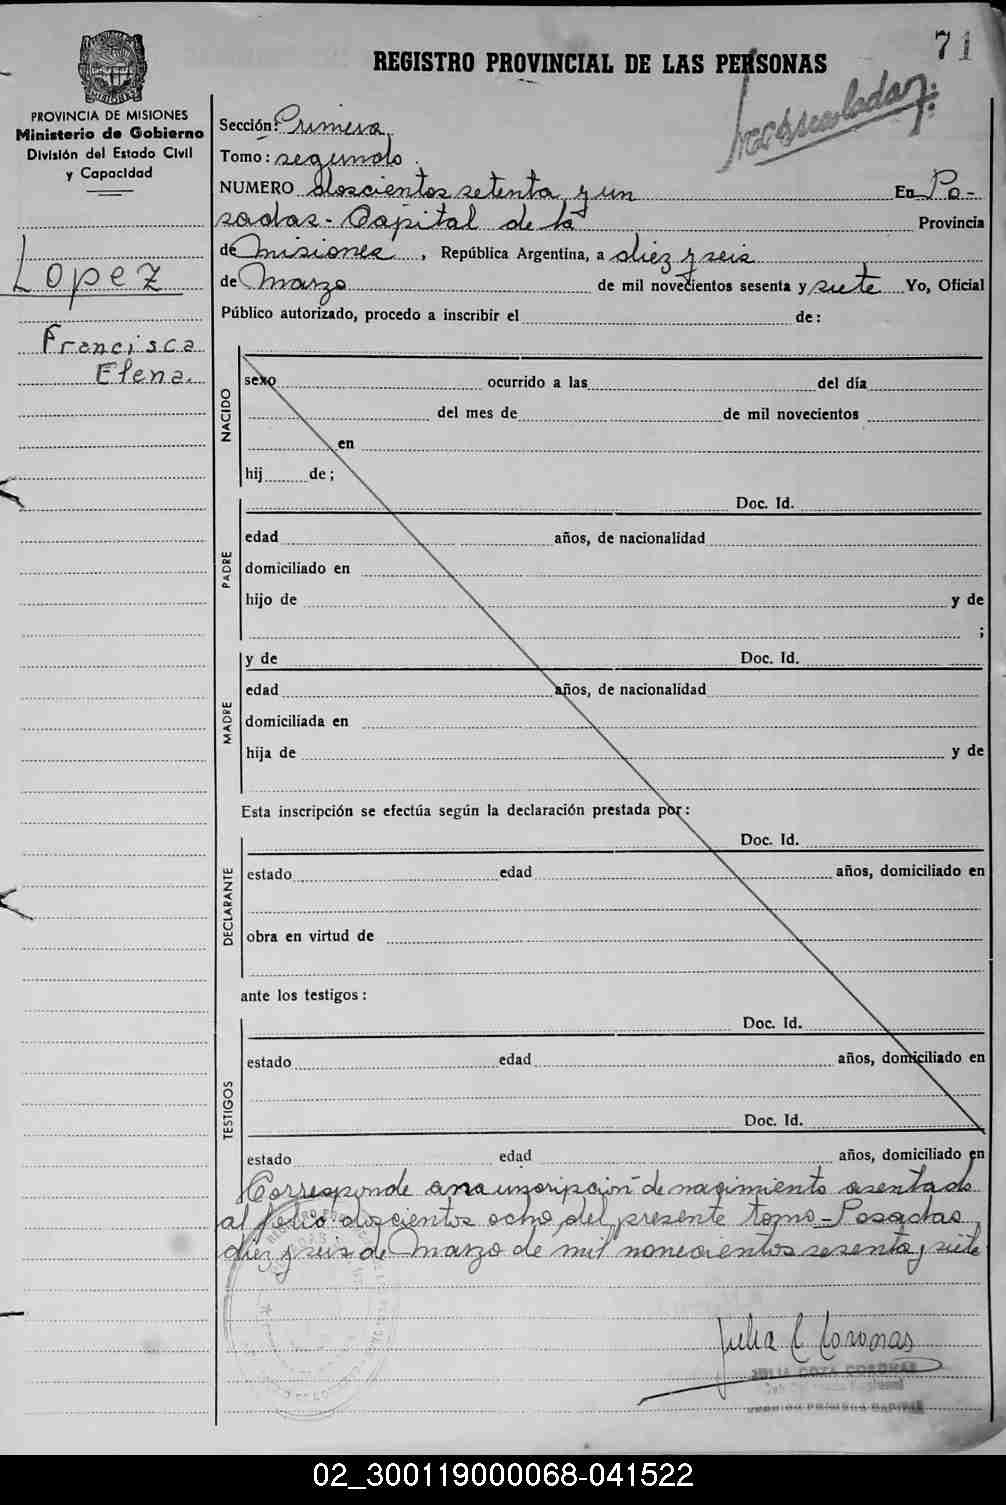 71
REGISTRO PROVINCIAL DE LAS PERSONAS
PROVINCIA DE MISIONES
Ministerio de Gobierno
División del Estado Civil
y Capacidad
Lopez
Francisca
Elena.
Sección: Primera
Tomo: segundo
NUMERO doscientos setenta y un En Po-
sadas - Capital de la Provincia
de Misiones, República Argentina, a diez y seis
de Marzo de mil novecientos sesenta y siete Yo, Oficial
Público autorizado, procedo a inscribir el de:
NACIDO
sexo ocurrido a las del día
del mes de de mil novecientos
en
hij de;
PADRE
Doc. Id.
edad años, de nacionalidad
domiciliado en
hijo de y de
;
MADRE
y de Doc. Id.
edad años, de nacionalidad
domiciliada en
hija de y de
Esta inscripción se efectúa según la declaración prestada por:
DECLARANTE
Doc. Id.
estado edad años, domiciliado en
obra en virtud de
ante los testigos:
TESTIGOS
Doc. Id.
estado edad años, domiciliado en
Doc. Id.
estado edad años, domiciliado en
Corresponde a una inscripción de nacimiento asentado
al folio doscientos ocho del presente tomo - Posadas
diez y seis de Marzo de mil novecientos sesenta y siete
Julia C Coronas
JULIA COZA CORONAS
02_300119000068-041522